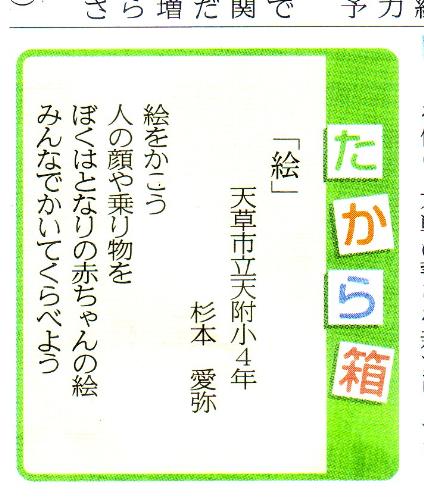 さら増だ関で　予力
たから箱
「絵」
天草市立天附小４年
杉本　愛弥
絵をかこう
人の顔や乗り物を
ぼくはとなりの赤ちゃんの絵
みんなでかいてくらべよう